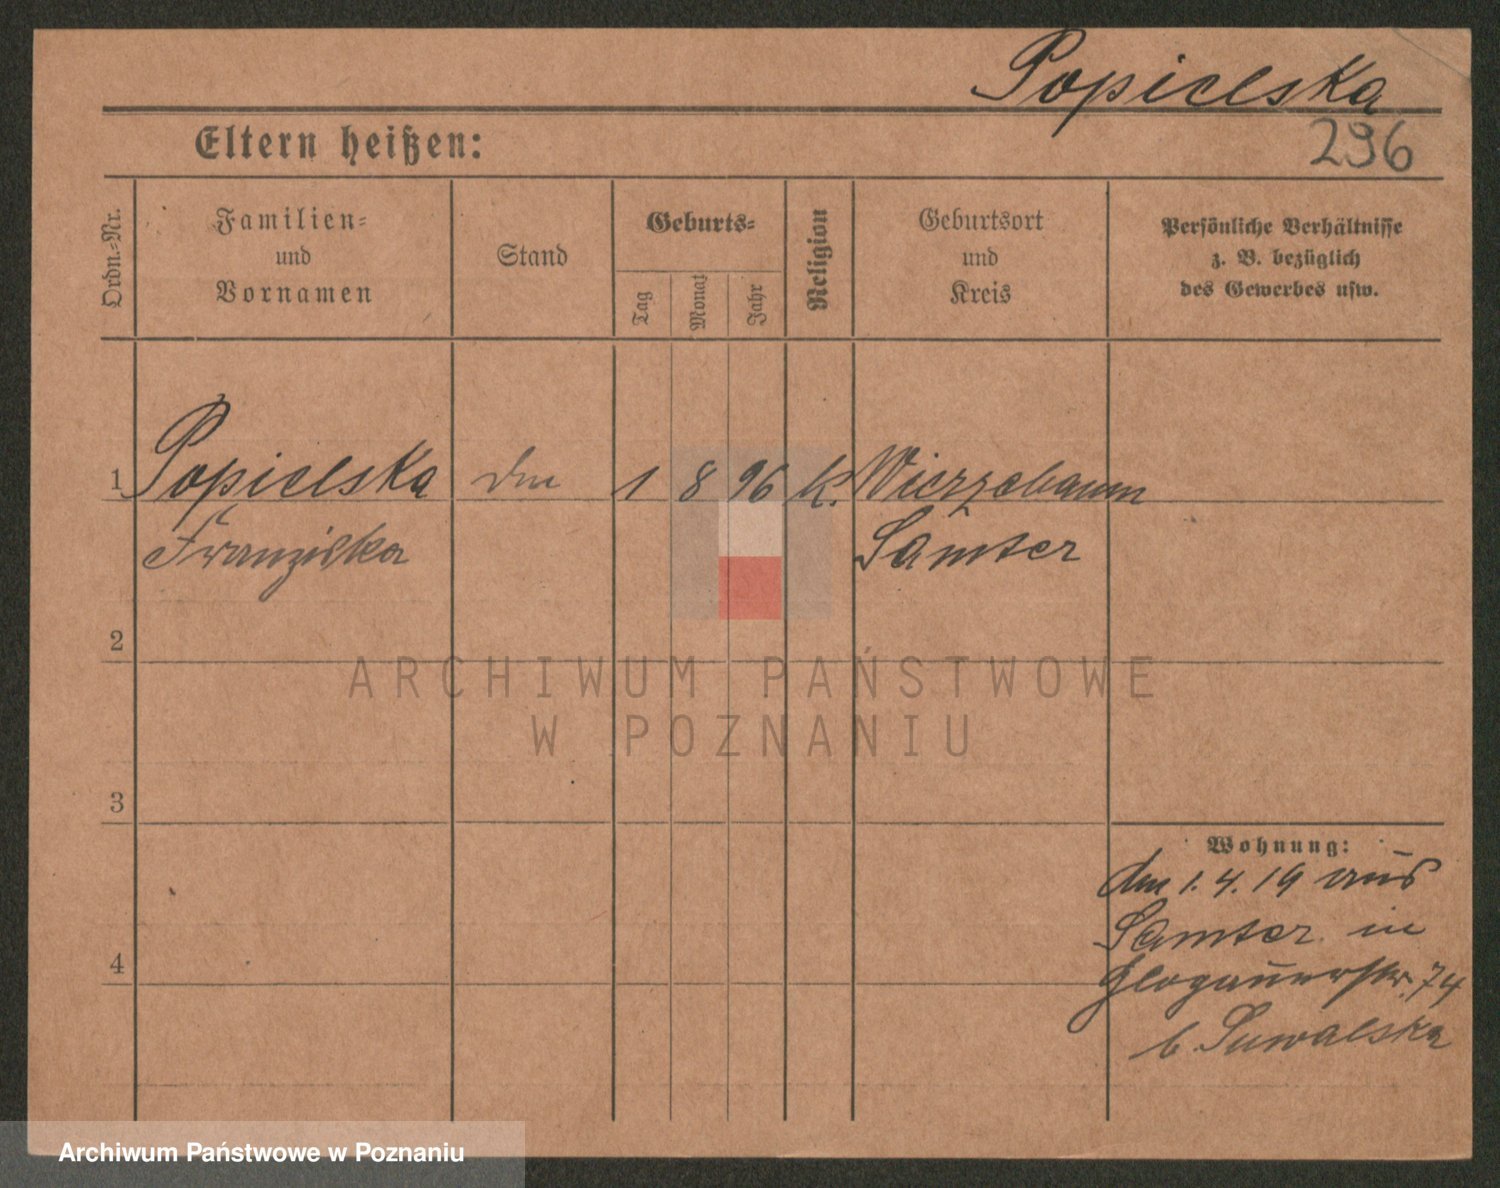 Popielska
Eltern heißen:
296
Ordn.-Nr.
Familien-
und
Vornamen
Stand
Geburts-
Tag
Monat
Jahr
Religion
Geburtsort
und
Kreis
Persönliche Verhältnisse
z. B. bezüglich
des Gewerbes usw.
1 Popielska 1 8 96 K. Wierzebaum
Franziska Samter
2
ARCHIWUM PAŃSTWOWE
W POZNANIU
3
Wohnung:
den 1.4.19 aus
Samter in
4
Glogauerstr. 74
b. Suwalska
Archiwum Państwowe w Poznaniu